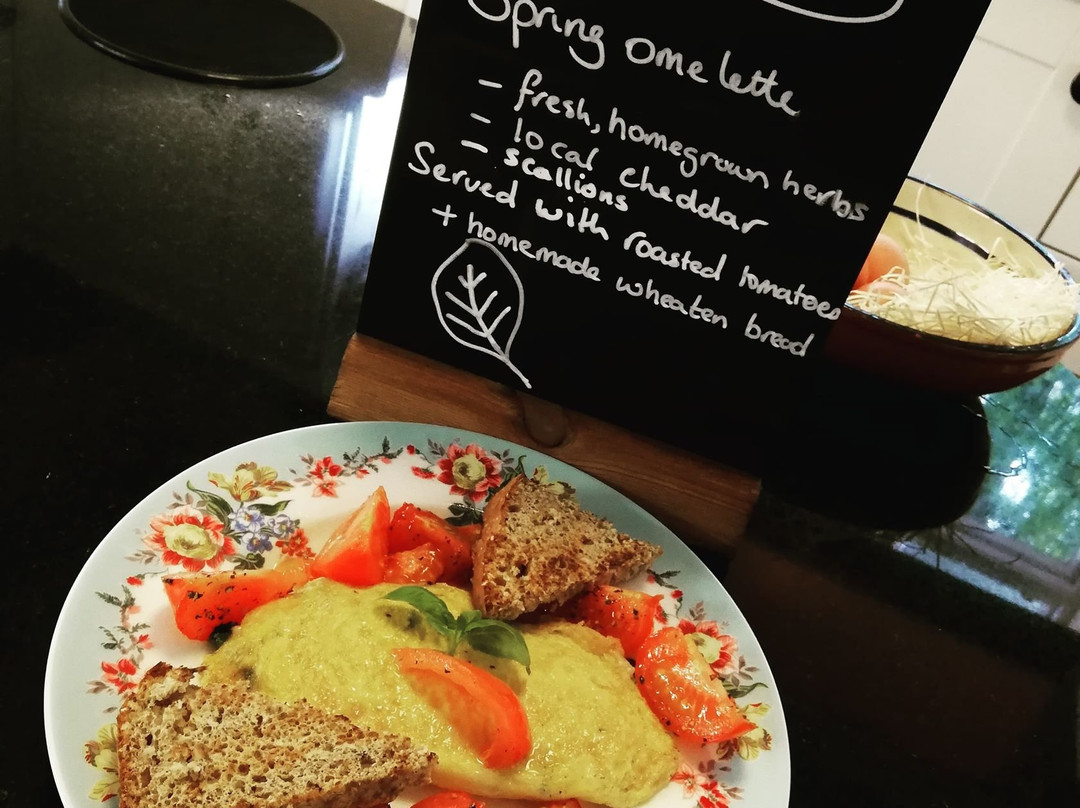 Spring omelette
- fresh, homegrown herbs
- local cheddar
- scallions
Served with roasted tomatoes
+ homemade wheaten bread